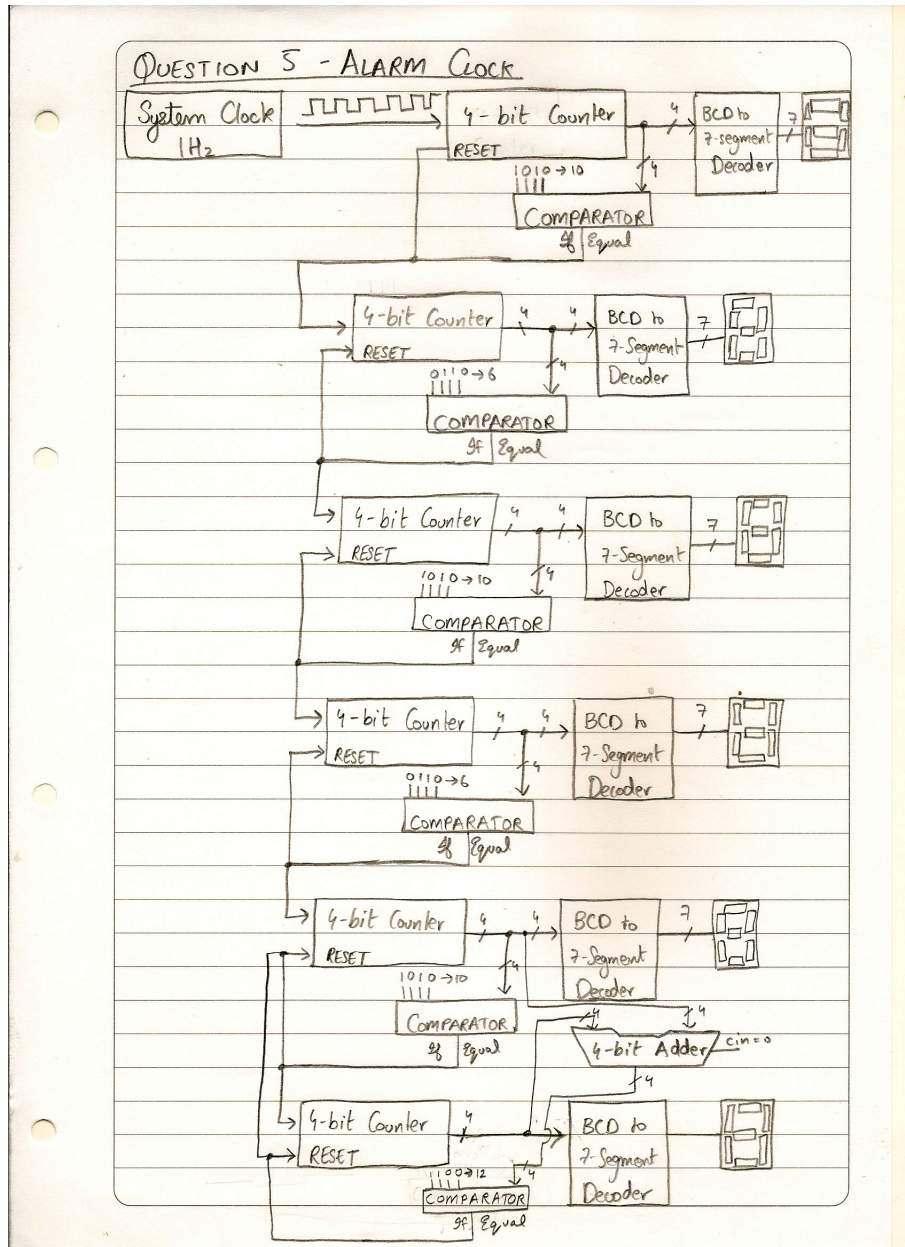 QUESTION 5 - ALARM CLOCK
System Clock
1Hz
4-bit Counter
RESET
4
BCD to
7-segment
Decoder
7
4
1010→10
COMPARATOR
If Equal
4-bit Counter
RESET
4
4
BCD to
7-Segment
Decoder
7
4
0110→6
COMPARATOR
If Equal
4-bit Counter
RESET
4
4
BCD to
7-Segment
Decoder
7
4
1010→10
COMPARATOR
If Equal
4-bit Counter
RESET
4
4
BCD to
7-Segment
Decoder
7
4
0110→6
COMPARATOR
If Equal
4-bit Counter
RESET
4
4
BCD to
7-Segment
Decoder
7
4
1010→10
COMPARATOR
If Equal
4
4
4-bit Adder
cin=0
4
4-bit Counter
RESET
4
BCD to
7-Segment
Decoder
4
1100→12
COMPARATOR
If Equal